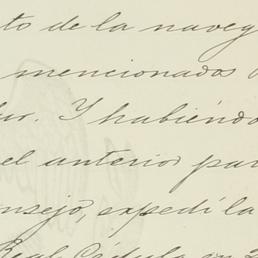 to de la naveg
mencionados
lur. Y habiendo
el anterior par
onsejo, expedí la
Real Cédula en